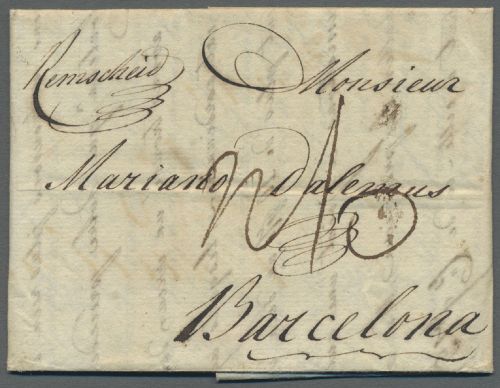 Remscheid
Monsieur
Mariano Dalemus
Barcelona